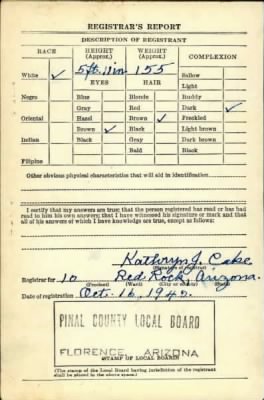 REGISTRAR'S REPORT
DESCRIPTION OF REGISTRANT
RACE HEIGHT (Approx.) WEIGHT (Approx.) COMPLEXION
White ✓ 5 ft. 11 in 155 Sallow
EYES HAIR Light
Negro Blue Blonde Ruddy
Gray Red Dark ✓
Oriental Hazel Brown ✓ Freckled
Brown ✓ Black Light brown
Indian Black Gray Dark brown
Bald Black
Filipino
Other obvious physical characteristics that will aid in identification
I certify that my answers are true; that the person registered has read or has had
read to him his own answers; that I have witnessed his signature or mark and that
all of his answers of which I have knowledge are true, except as follows:
Kathryn J. Cake
(Signature of registrar)
Registrar for 10 Red Rock, Arizona.
(Precinct) (Ward) (City or county) (State)
Date of registration Oct. 16, 1940.
PINAL COUNTY LOCAL BOARD
FLORENCE, ARIZONA
(STAMP OF LOCAL BOARD)
(The stamp of the Local Board having jurisdiction of the registrant
shall be placed in the above space.)